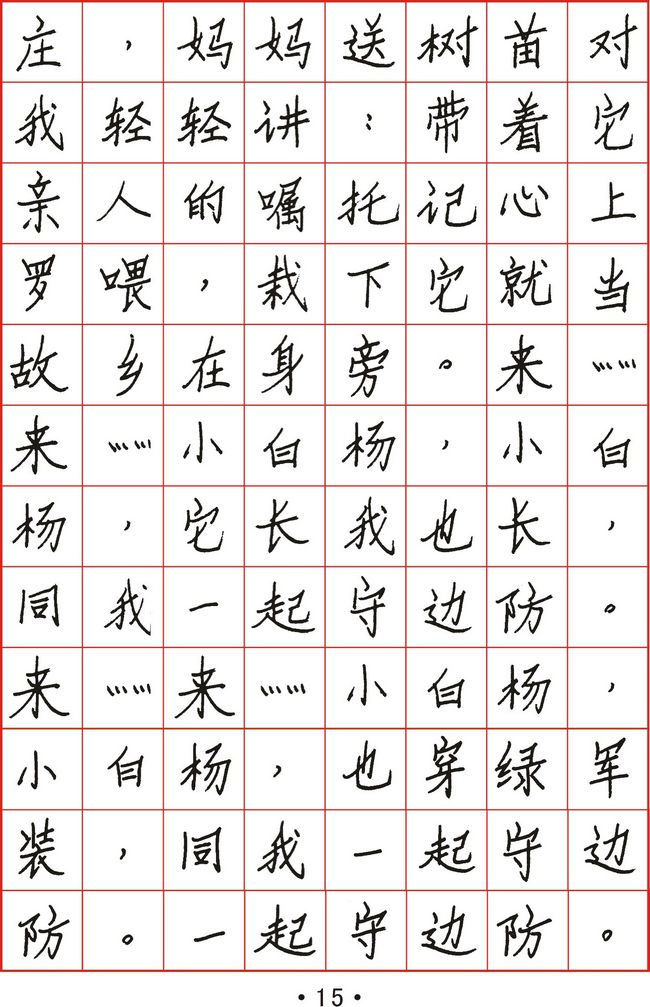 庄，妈妈送树苗对
我轻轻讲：带着它
亲人的嘱托记心上
罗喂，栽下它就当
故乡在身旁。来……
来……小白杨，小白
杨，它长我也长，
同我一起守边防。
来……来……小白杨，
小白杨，也穿绿军
装，同我一起守边
防。一起守边防。
·15·